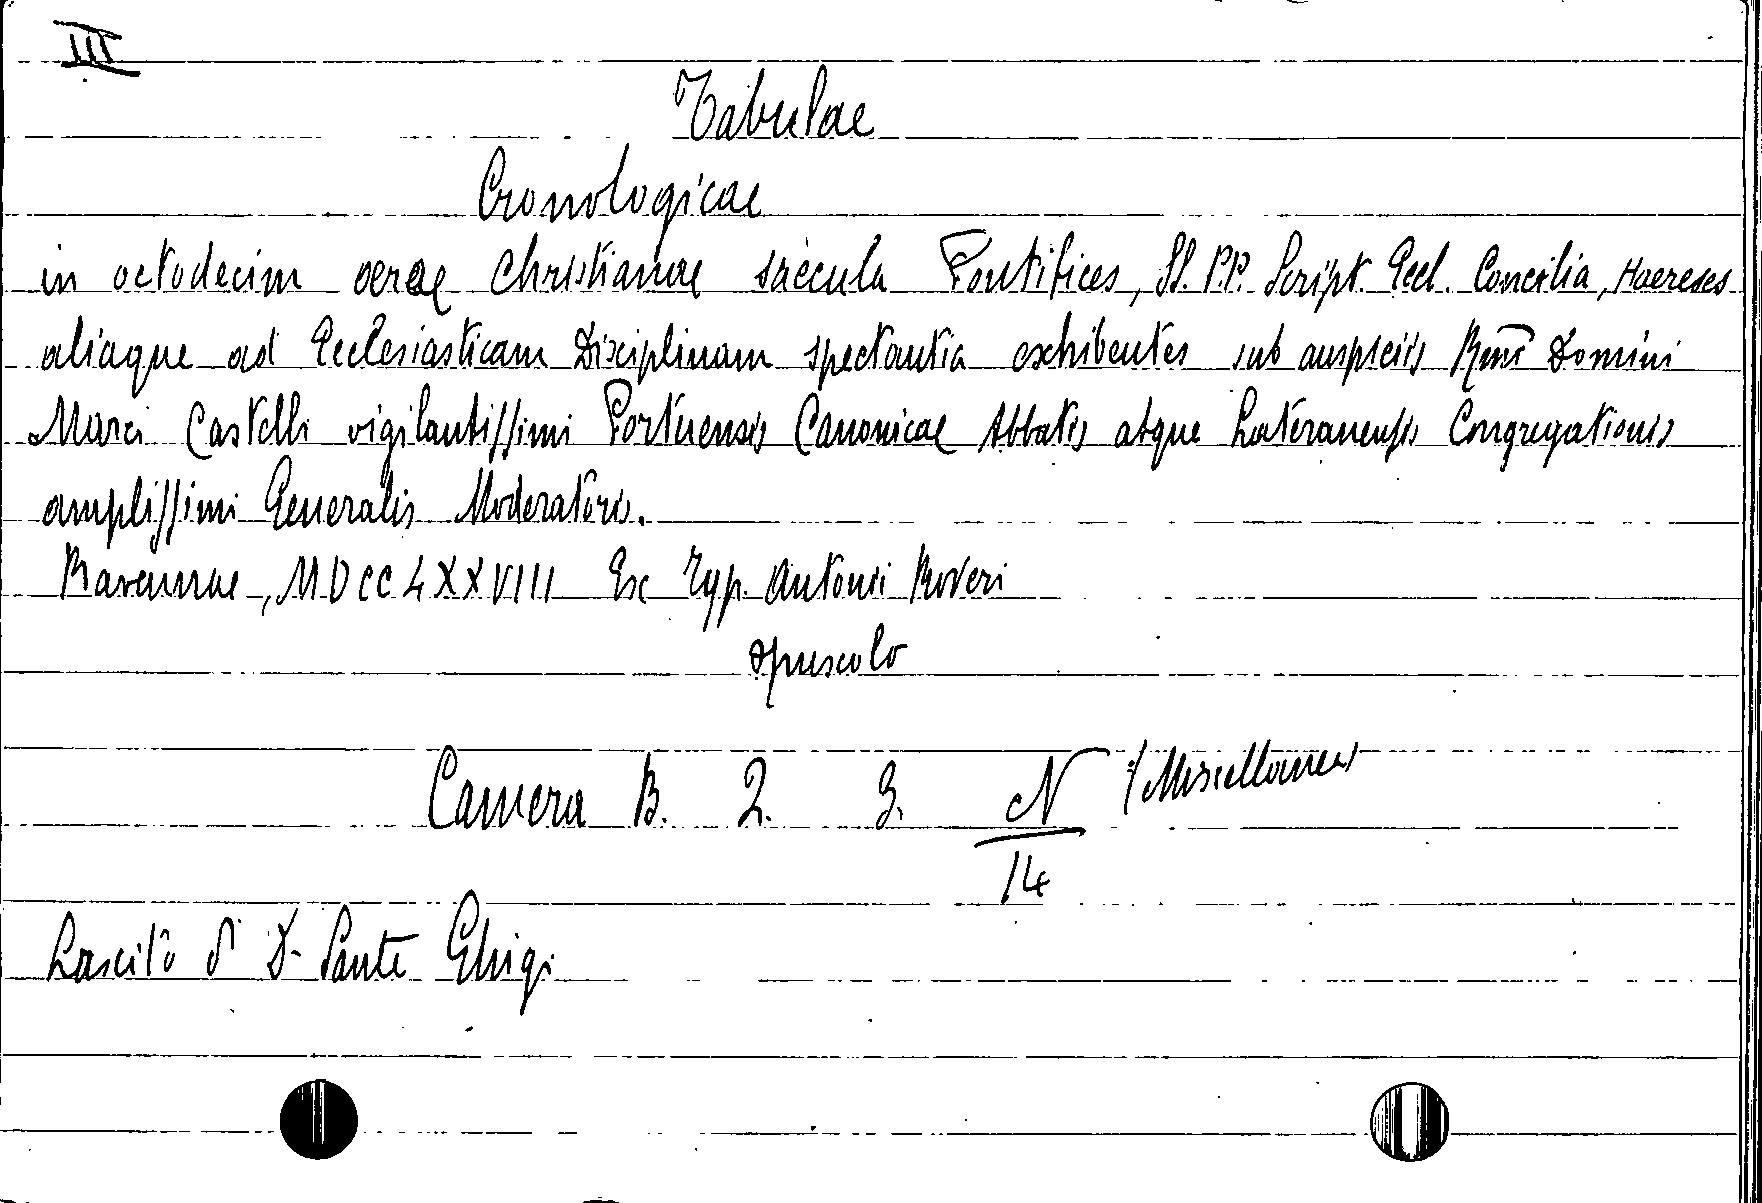 III
Tabulae
Cronologicae
in octodecim aerae Christianae saecula Pontifices, SS. P.P. Script. Eccl. Concilia, Haereses
aliaque ad Ecclesiasticam Disciplinam spectantia exhibentes sub auspiciis Rmi Domini
Marci Castelli vigilantissimi Portuensis Canonicae Abbatis atque Lateranensis Congregationis
amplissimi Generalis Moderatoris.
Ravennae, MDCCLXXVIII Ex Typ. Antonii Roveri
opuscolo
Camera B. 2. 3. N (Miscellanea)
14
Lascito di D. Sante Ghigi